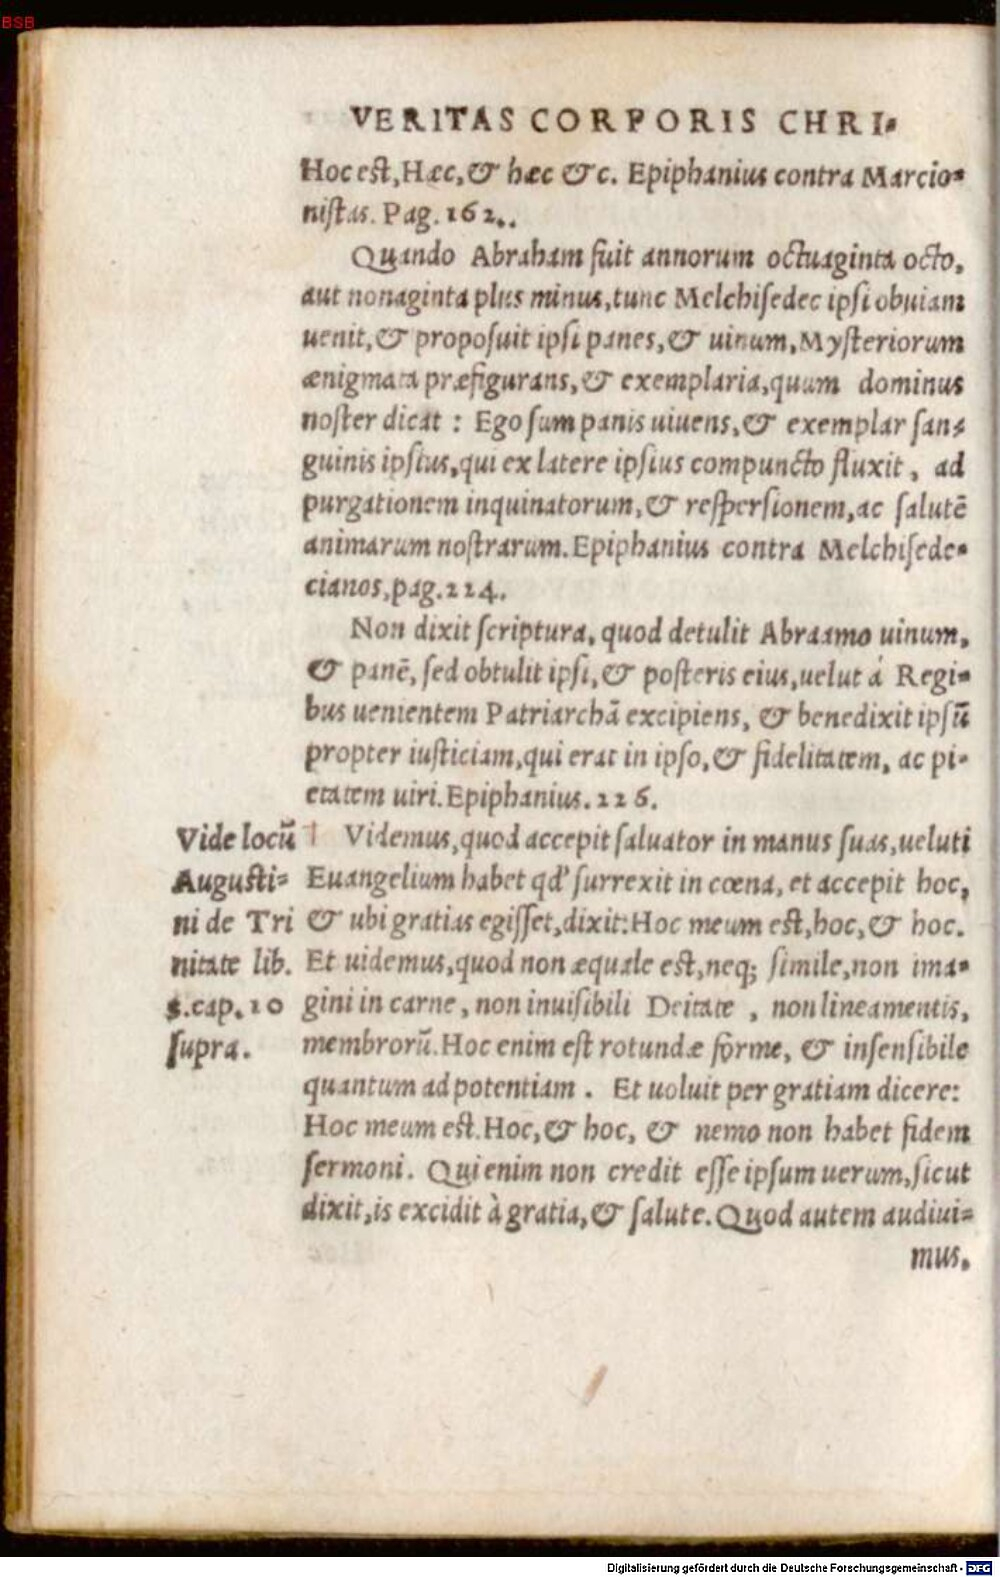 BSB
VERITAS CORPORIS CHRI-
Hoc est, Hæc, & hæc &c. Epiphanius contra Marcio-
nistas. Pag. 162..
Quando Abraham fuit annorum octuaginta octo,
aut nonaginta plus minus, tunc Melchisedec ipsi obuiam
uenit, & proposuit ipsi panes, & uinum, Mysteriorum
ænigmata præfigurans, & exemplaria, quum dominus
noster dicat : Ego sum panis uiuens, & exemplar san-
guinis ipsius, qui ex latere ipsius compuncto fluxit, ad
purgationem inquinatorum, & respersionem, ac salutē
animarum nostrarum. Epiphanius contra Melchisede-
cianos, pag. 224.
Non dixit scriptura, quod detulit Abraamo uinum,
& panē, sed obtulit ipsi, & posteris eius, uelut á Regi-
bus uenientem Patriarchā excipiens, & benedixit ipsū
propter iusticiam, qui erat in ipso, & fidelitatem, ac pi-
etatem uiri. Epiphanius. 226.
Videmus, quod accepit saluator in manus suas, ueluti
Euangelium habet qd' surrexit in cœna, et accepit hoc,
& ubi gratias egisset, dixit: Hoc meum est, hoc, & hoc.
Et uidemus, quod non æquale est, neq; simile, non ima-
gini in carne, non inuisibili Deitate , non lineamentis,
membrorū. Hoc enim est rotundæ forme, & insensibile
quantum ad potentiam . Et uoluit per gratiam dicere:
Hoc meum est. Hoc, & hoc, & nemo non habet fidem
sermoni. Qui enim non credit esse ipsum uerum, sicut
dixit, is excidit à gratia, & salute. Quod autem audiui-
mus,
Vide locū
Augusti-
ni de Tri
nitate lib.
cap. 10
supra.
Digitalisierung gefördert durch die Deutsche Forschungsgemeinschaft - DFG